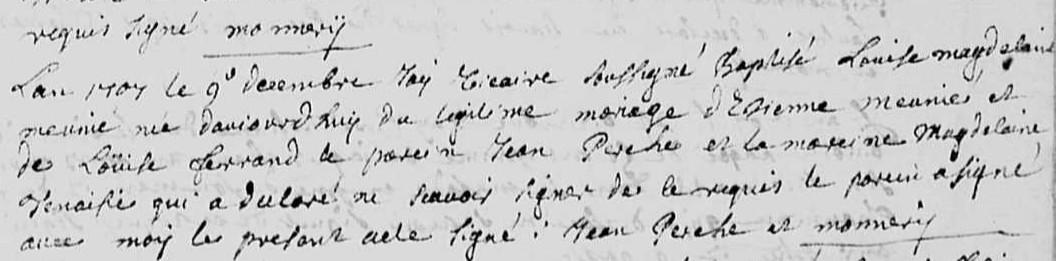 requis signé monnerij
Lan 1707 le 9e decembre Jay vicaire soussigné Baptisé Louise magdelaine
meunié née daujourdhuij du legitime mariage d'Etienne meunié et
de Loüise ferrand le parein Jean Perche et la mareine Magdelaine
qui a declaré ne scavoir signer de ce requis le parein a signé
avec moij le present acte signé : Jean Perche et monnerij